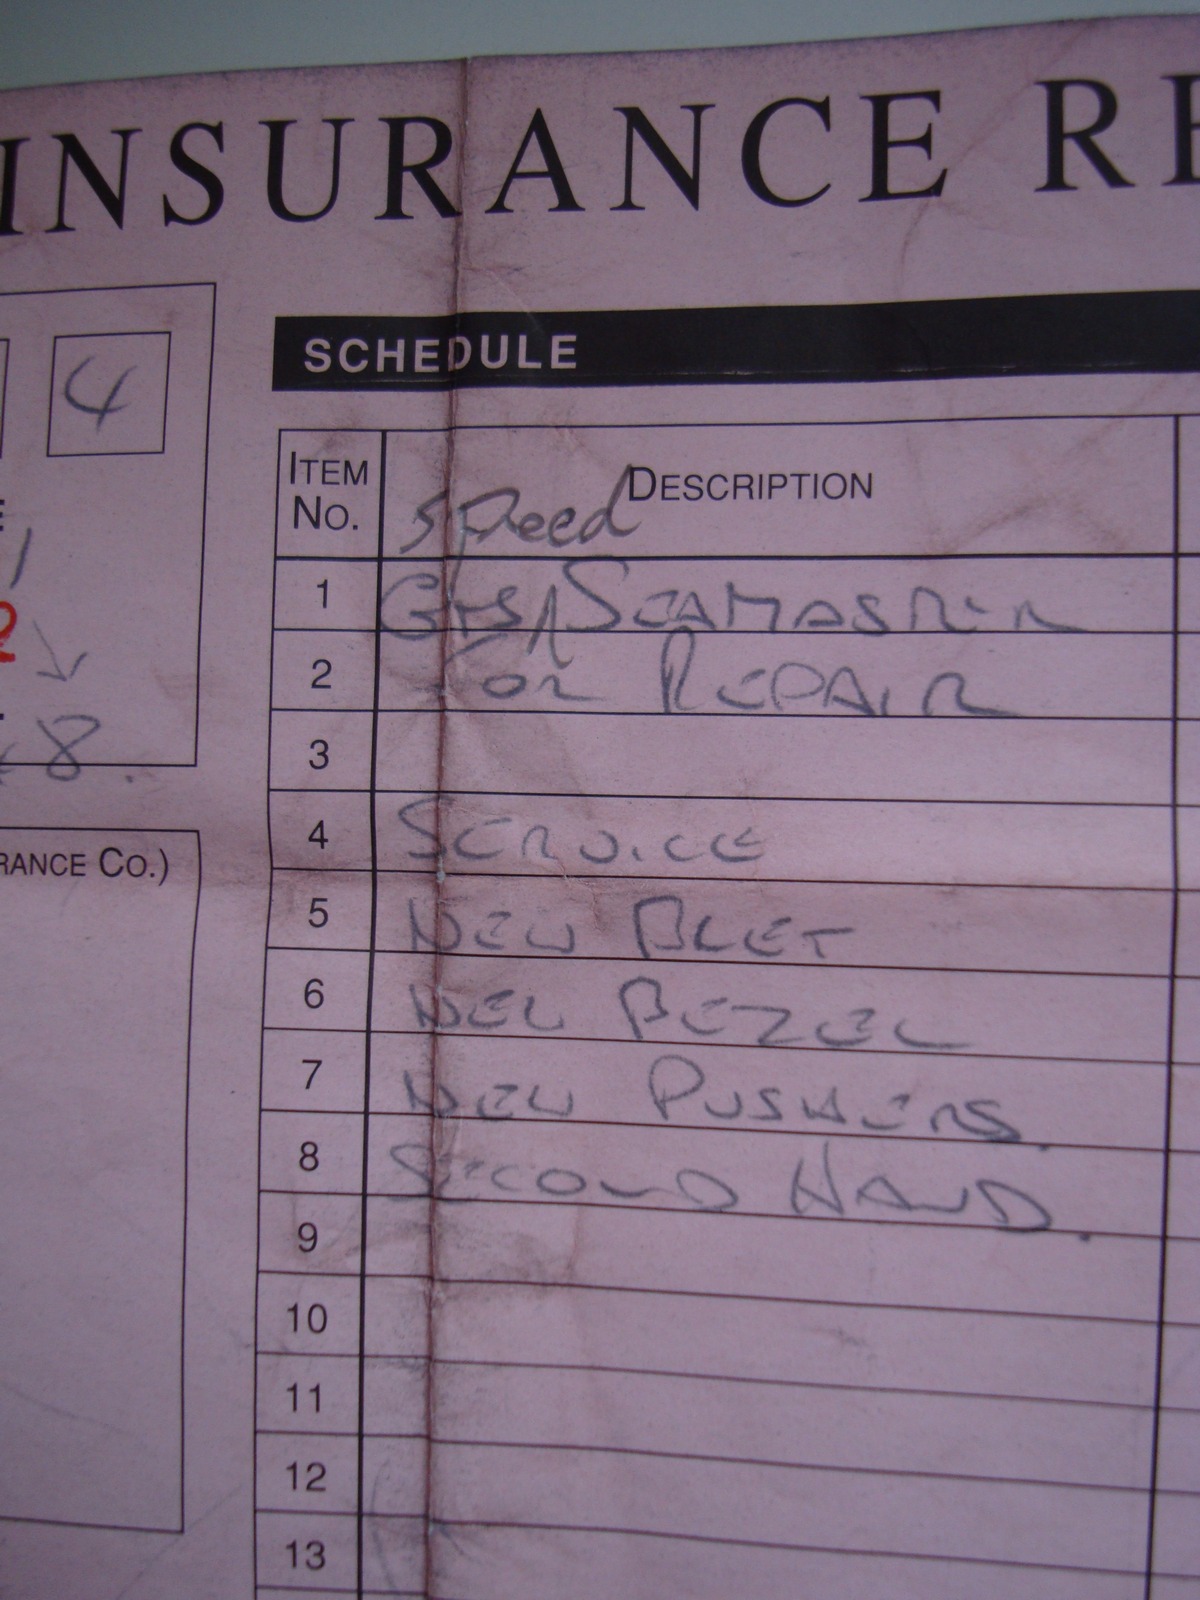 INSURANCE RE
4
8.
RANCE CO.)
SCHEDULE
ITEM No.
DESCRIPTION
Speed
1 Gts/SEAMASTER
2 For REPAIR
3
4 SERVICE
5 NEW BLET
6 NEW BEZEL
7 NEW PUSHERS.
8 SECOND HAND.
9
10
11
12
13